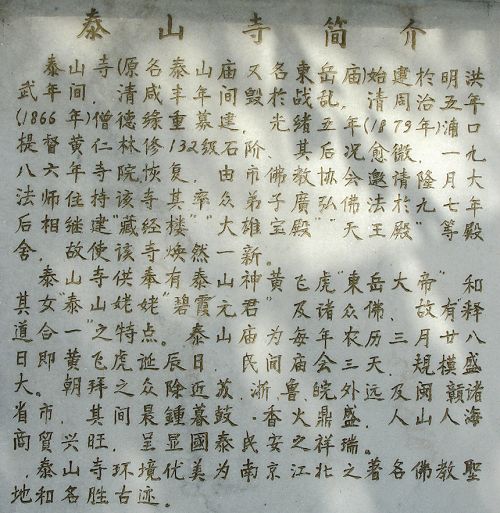 泰山寺简介
泰山寺(原各泰山庙又名东岳庙)始建於明洪
武年间,清咸丰年间毁於战乱,清同治五年
(1866年)僧德缘重募建,光绪五年(1879年)浦口
提督黄仁林修132级石阶、其后况愈微,一九
八六年寺院恢复,由佛教协会邀请隆月九
法师住持该寺其率众弟子广弘佛法於七年
后相继建"藏经楼""大雄宝殿""天王殿"等殿
舍,故使该寺焕然一新。
泰山寺供奉有泰山神黄飞虎"东岳大帝"和
其女"泰山姥姥"碧霞元君"及诸佛,故有"释
道合一"之特点。泰山庙为每年农历三月廿八
日即黄飞虎诞辰日,民间庙会三天,规模盛
大。朝拜之众除近苏、浙、鲁、皖外远及闽赣诸
省市,其间晨钟暮鼓·香火鼎盛,人山人海
商贸兴旺,呈显国泰民安之祥瑞。
泰山寺环境优美为南京江北之著名佛教圣
地和名胜古迹。